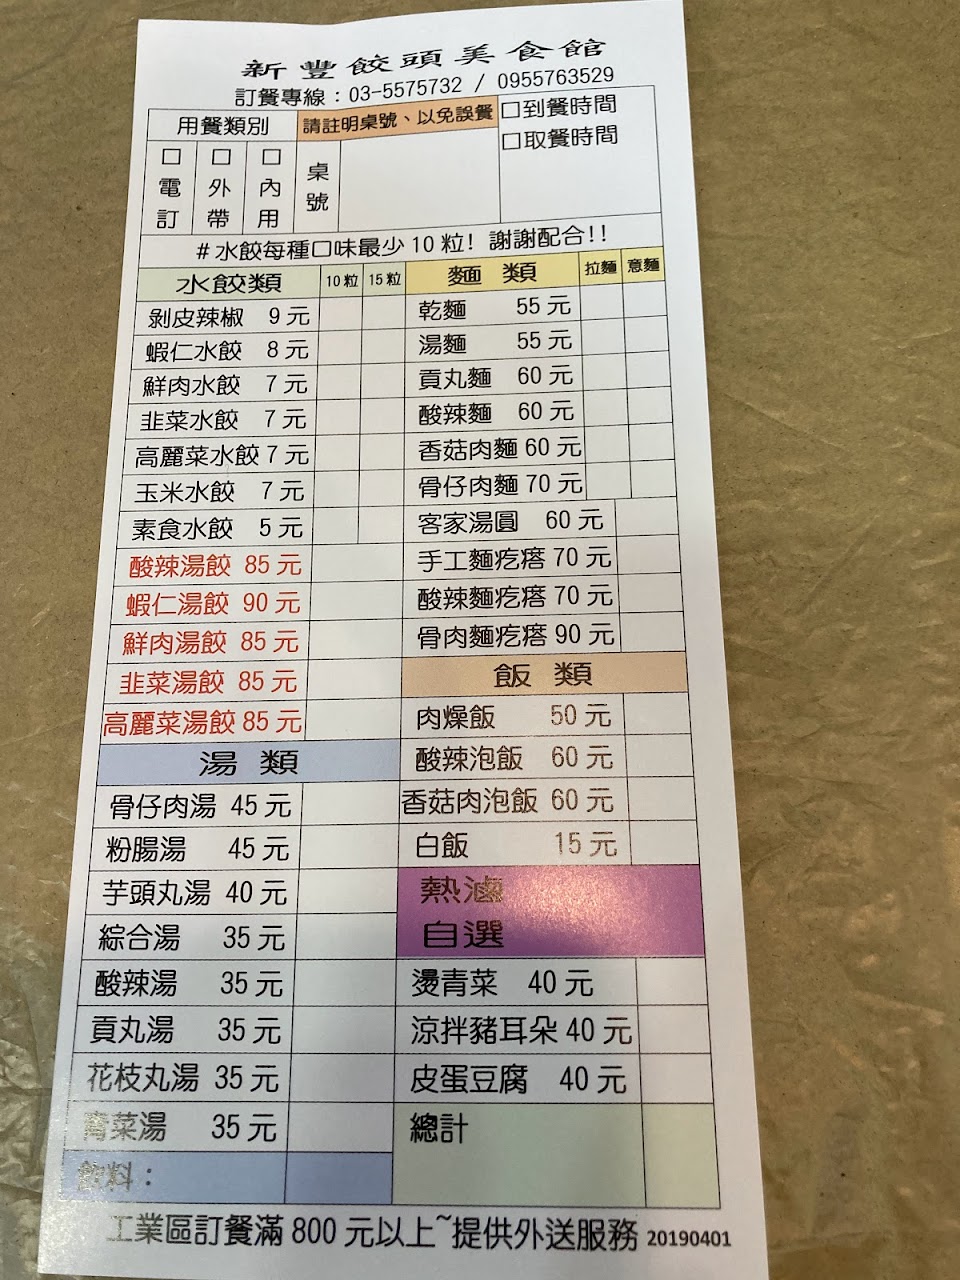 新豐餃頭美食館
訂餐專線：03-5575732 / 0955763529
用餐類別
請註明桌號、以免誤餐
□到餐時間
□取餐時間
□電訂
□外帶
□內用
桌號
#水餃每種口味最少10粒! 謝謝配合!!
水餃類 10粒 15粒
剝皮辣椒 9元
蝦仁水餃 8元
鮮肉水餃 7元
韭菜水餃 7元
高麗菜水餃 7元
玉米水餃 7元
素食水餃 5元
酸辣湯餃 85元
蝦仁湯餃 90元
鮮肉湯餃 85元
韭菜湯餃 85元
高麗菜湯餃 85元
湯類
骨仔肉湯 45元
粉腸湯 45元
芋頭丸湯 40元
綜合湯 35元
酸辣湯 35元
貢丸湯 35元
花枝丸湯 35元
青菜湯 35元
飲料：
麵類 拉麵 意麵
乾麵 55元
湯麵 55元
貢丸麵 60元
酸辣麵 60元
香菇肉麵 60元
骨仔肉麵 70元
客家湯圓 60元
手工麵疙瘩 70元
酸辣麵疙瘩 70元
骨肉麵疙瘩 90元
飯類
肉燥飯 50元
酸辣泡飯 60元
香菇肉泡飯 60元
白飯 15元
熱滷
自選
燙青菜 40元
涼拌豬耳朵 40元
皮蛋豆腐 40元
總計
工業區訂餐滿800元以上~提供外送服務 20190401